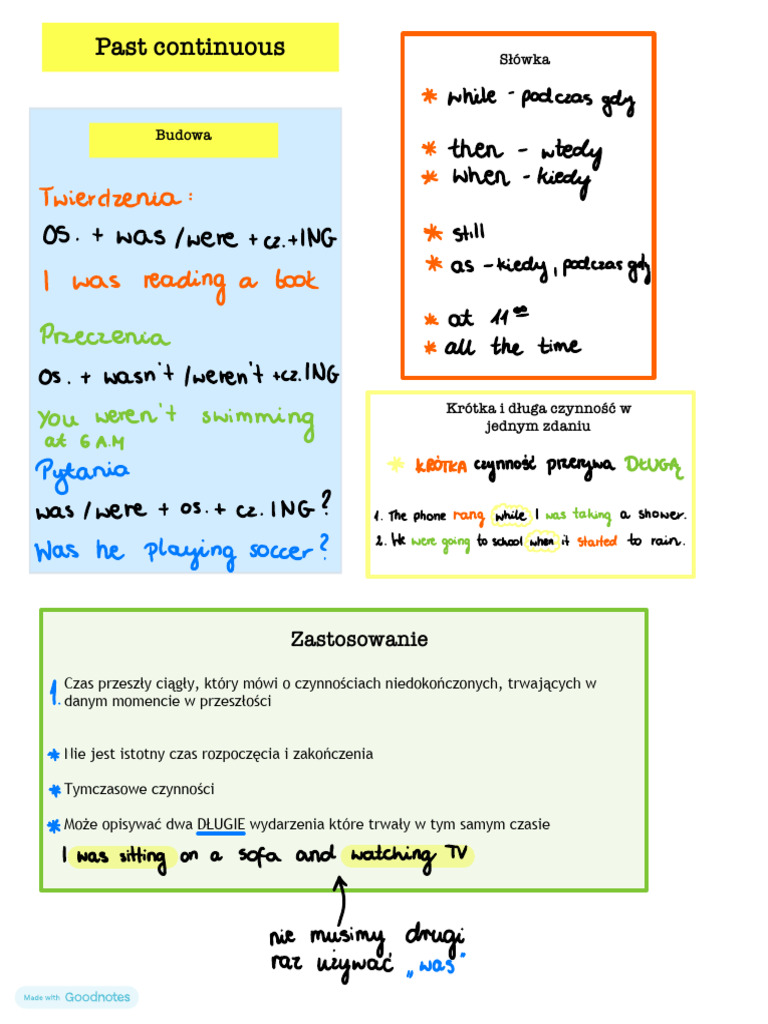 Past continuous
Budowa
Twierdzenia:
os. + was /were + cz.+ING
I was reading a book
Przeczenia
os. + wasn't /weren't +cz.ING
You weren't swimming
at 6 A.M
Pytania
was /were + os. + cz. ING?
Was he playing soccer?
Słówka
* while - podczas gdy
* then - wtedy
* when - kiedy
* still
* as - kiedy, podczas gdy
* at 11⁰⁰
* all the time
Krótka i długa czynność w
jednym zdaniu
* KRÓTKA czynność przerywa DŁUGĄ
1. The phone rang while I was taking a shower.
2. He were going to school when it started to rain.
Zastosowanie
1. Czas przeszły ciągły, który mówi o czynnościach niedokończonych, trwających w
danym momencie w przeszłości
* Nie jest istotny czas rozpoczęcia i zakończenia
* Tymczasowe czynności
* Może opisywać dwa DŁUGIE wydarzenia które trwały w tym samym czasie
I was sitting on a sofa and watching TV
nie musimy drugi
raz używać „was"
Made with Goodnotes